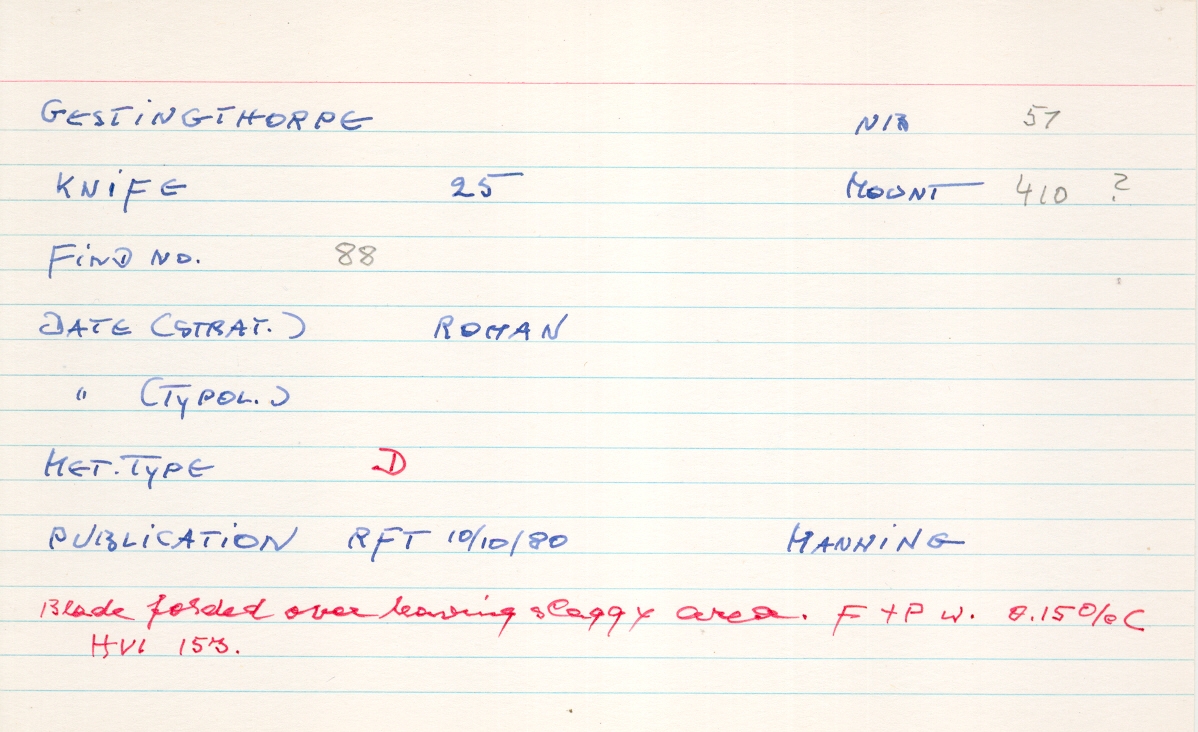 GESTINGTHORPE NB 57
KNIFE 25 MOUNT 410 ?
FIND NO. 88
DATE (STRAT.) ROMAN
" (TYPOL.)
MET. TYPE D
PUBLICATION RFT 10/10/80 MANNING
Blade folded over leaving slaggy area. F + P w. 0.15% C
HV1 153.